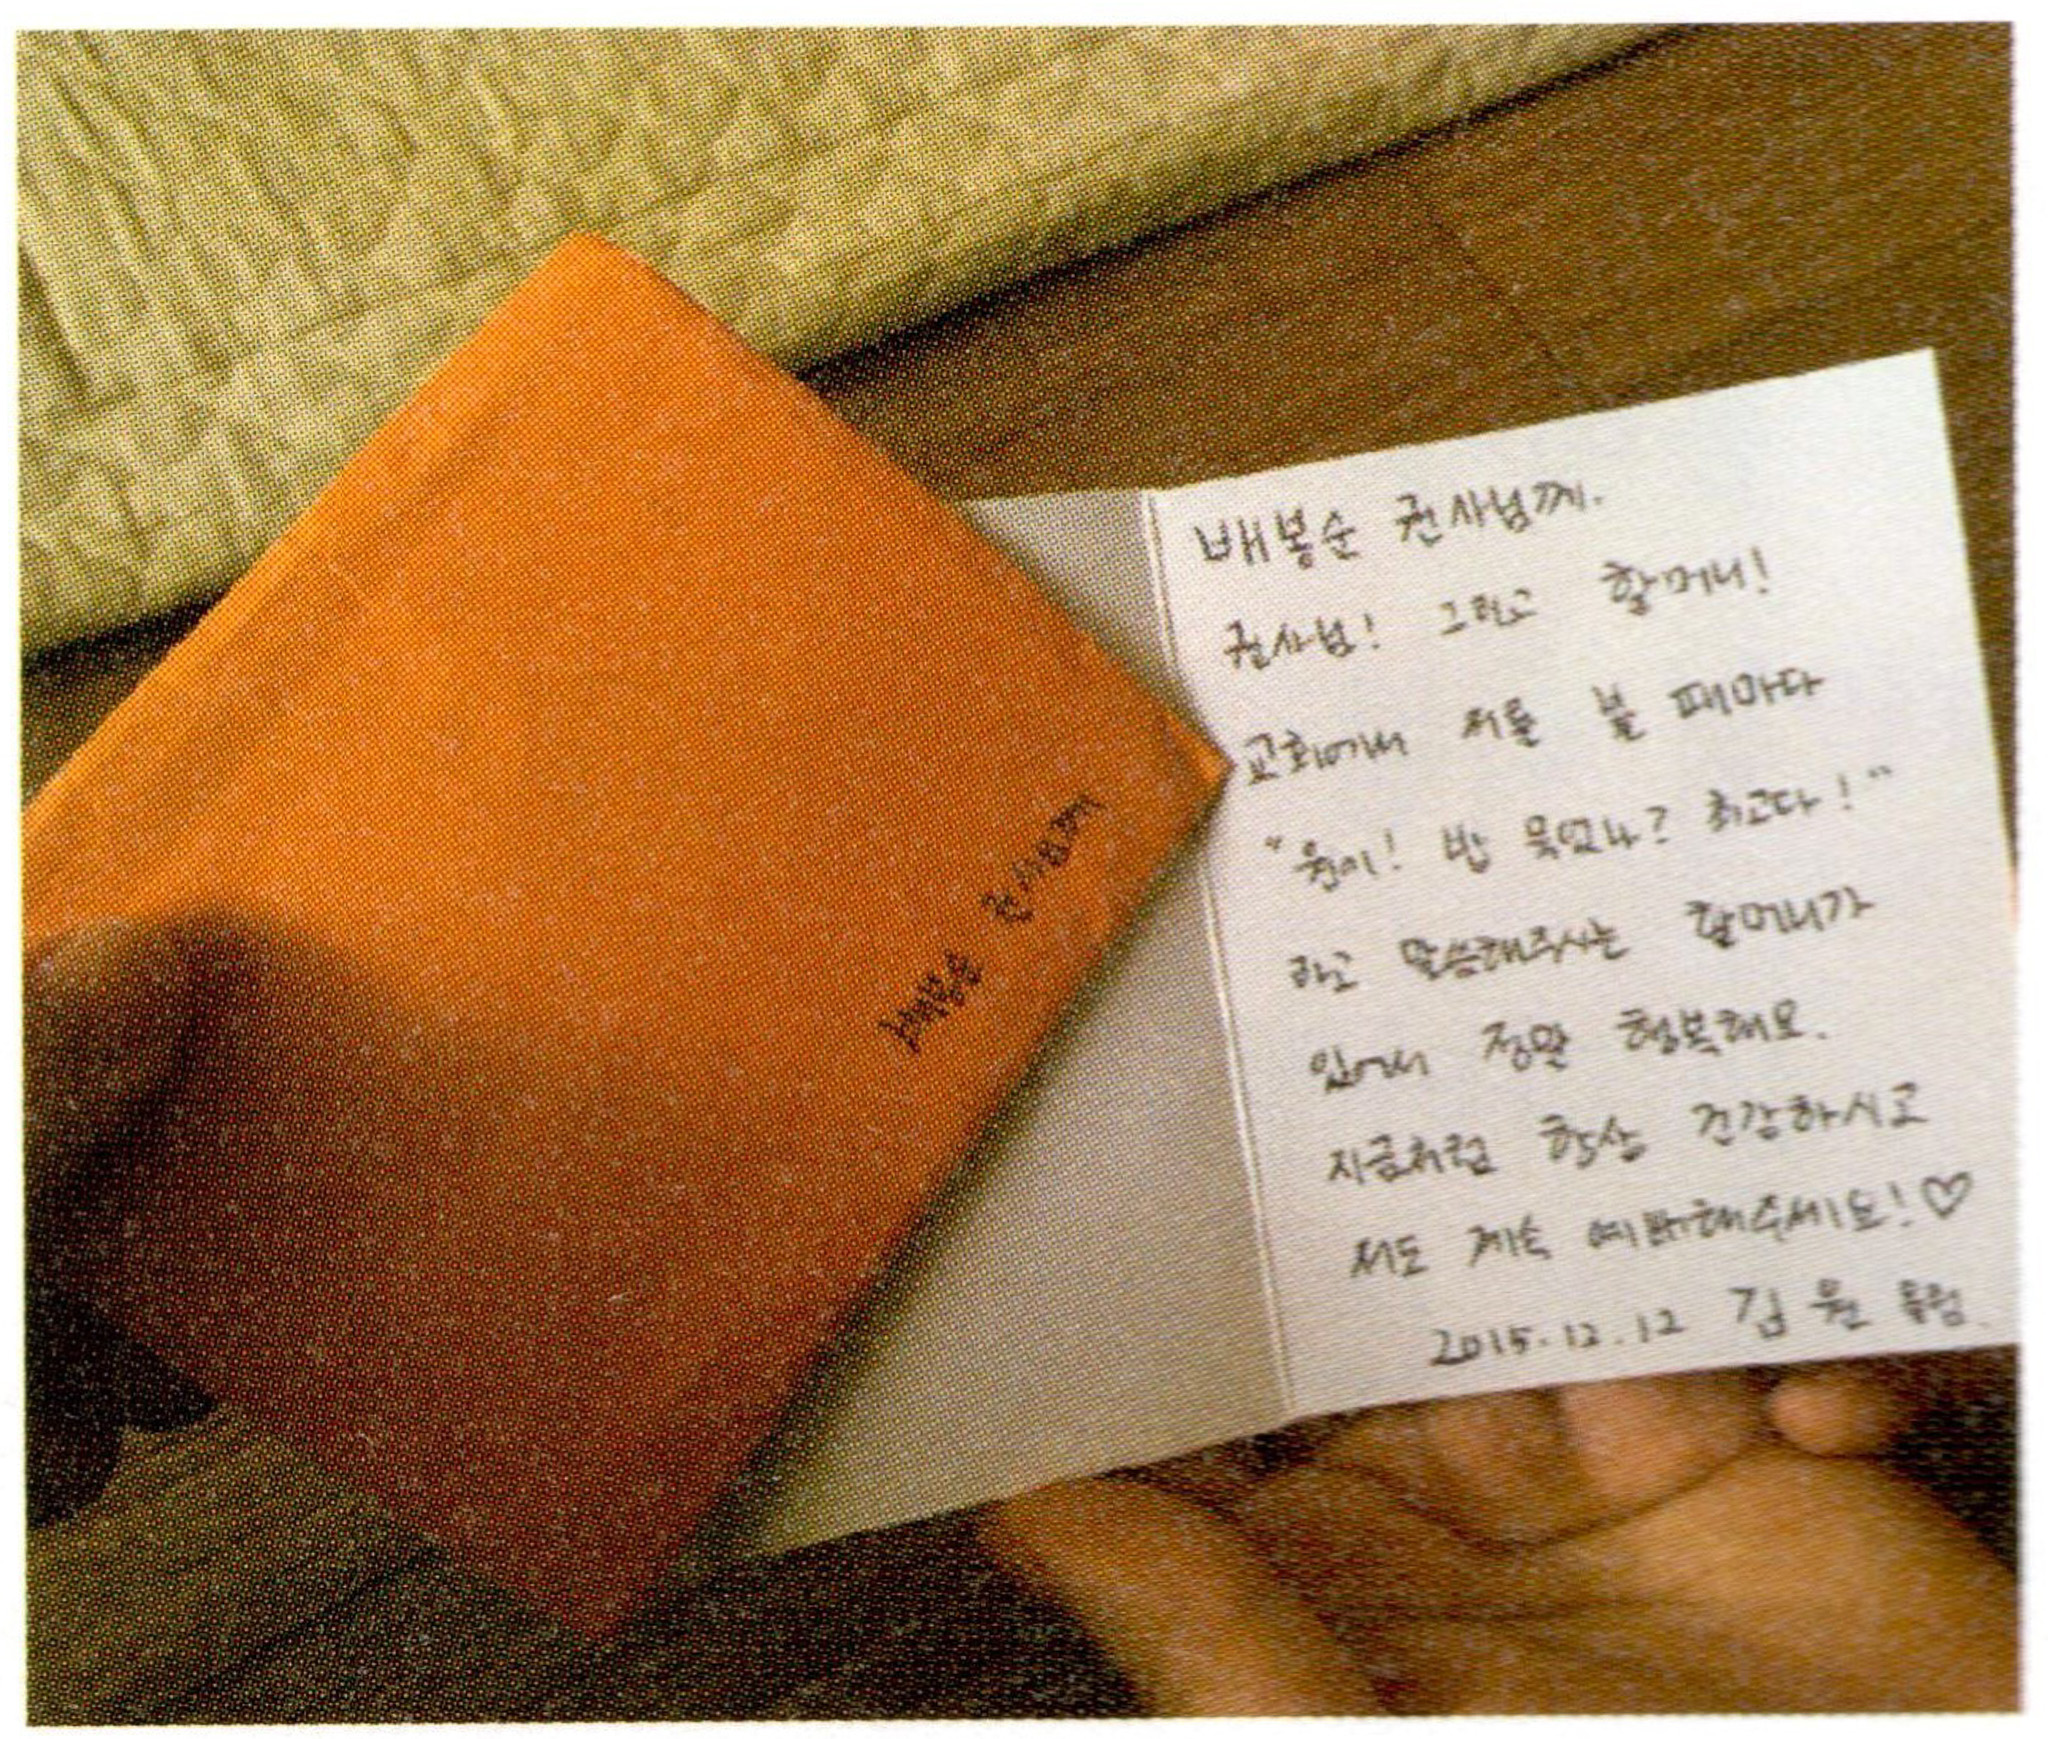 배봉순 권사님께
배봉순 권사님께.
권사님! 그리고 할머니!
교회에서 저를 볼 때마다
"원이! 밥 묵었나? 최고다!"
라고 말씀해주시는 할머니가
있어서 정말 행복해요.
지금처럼 항상 건강하시고
저도 계속 예뻐해주세요!♡
2015.12.12 김원 드림.